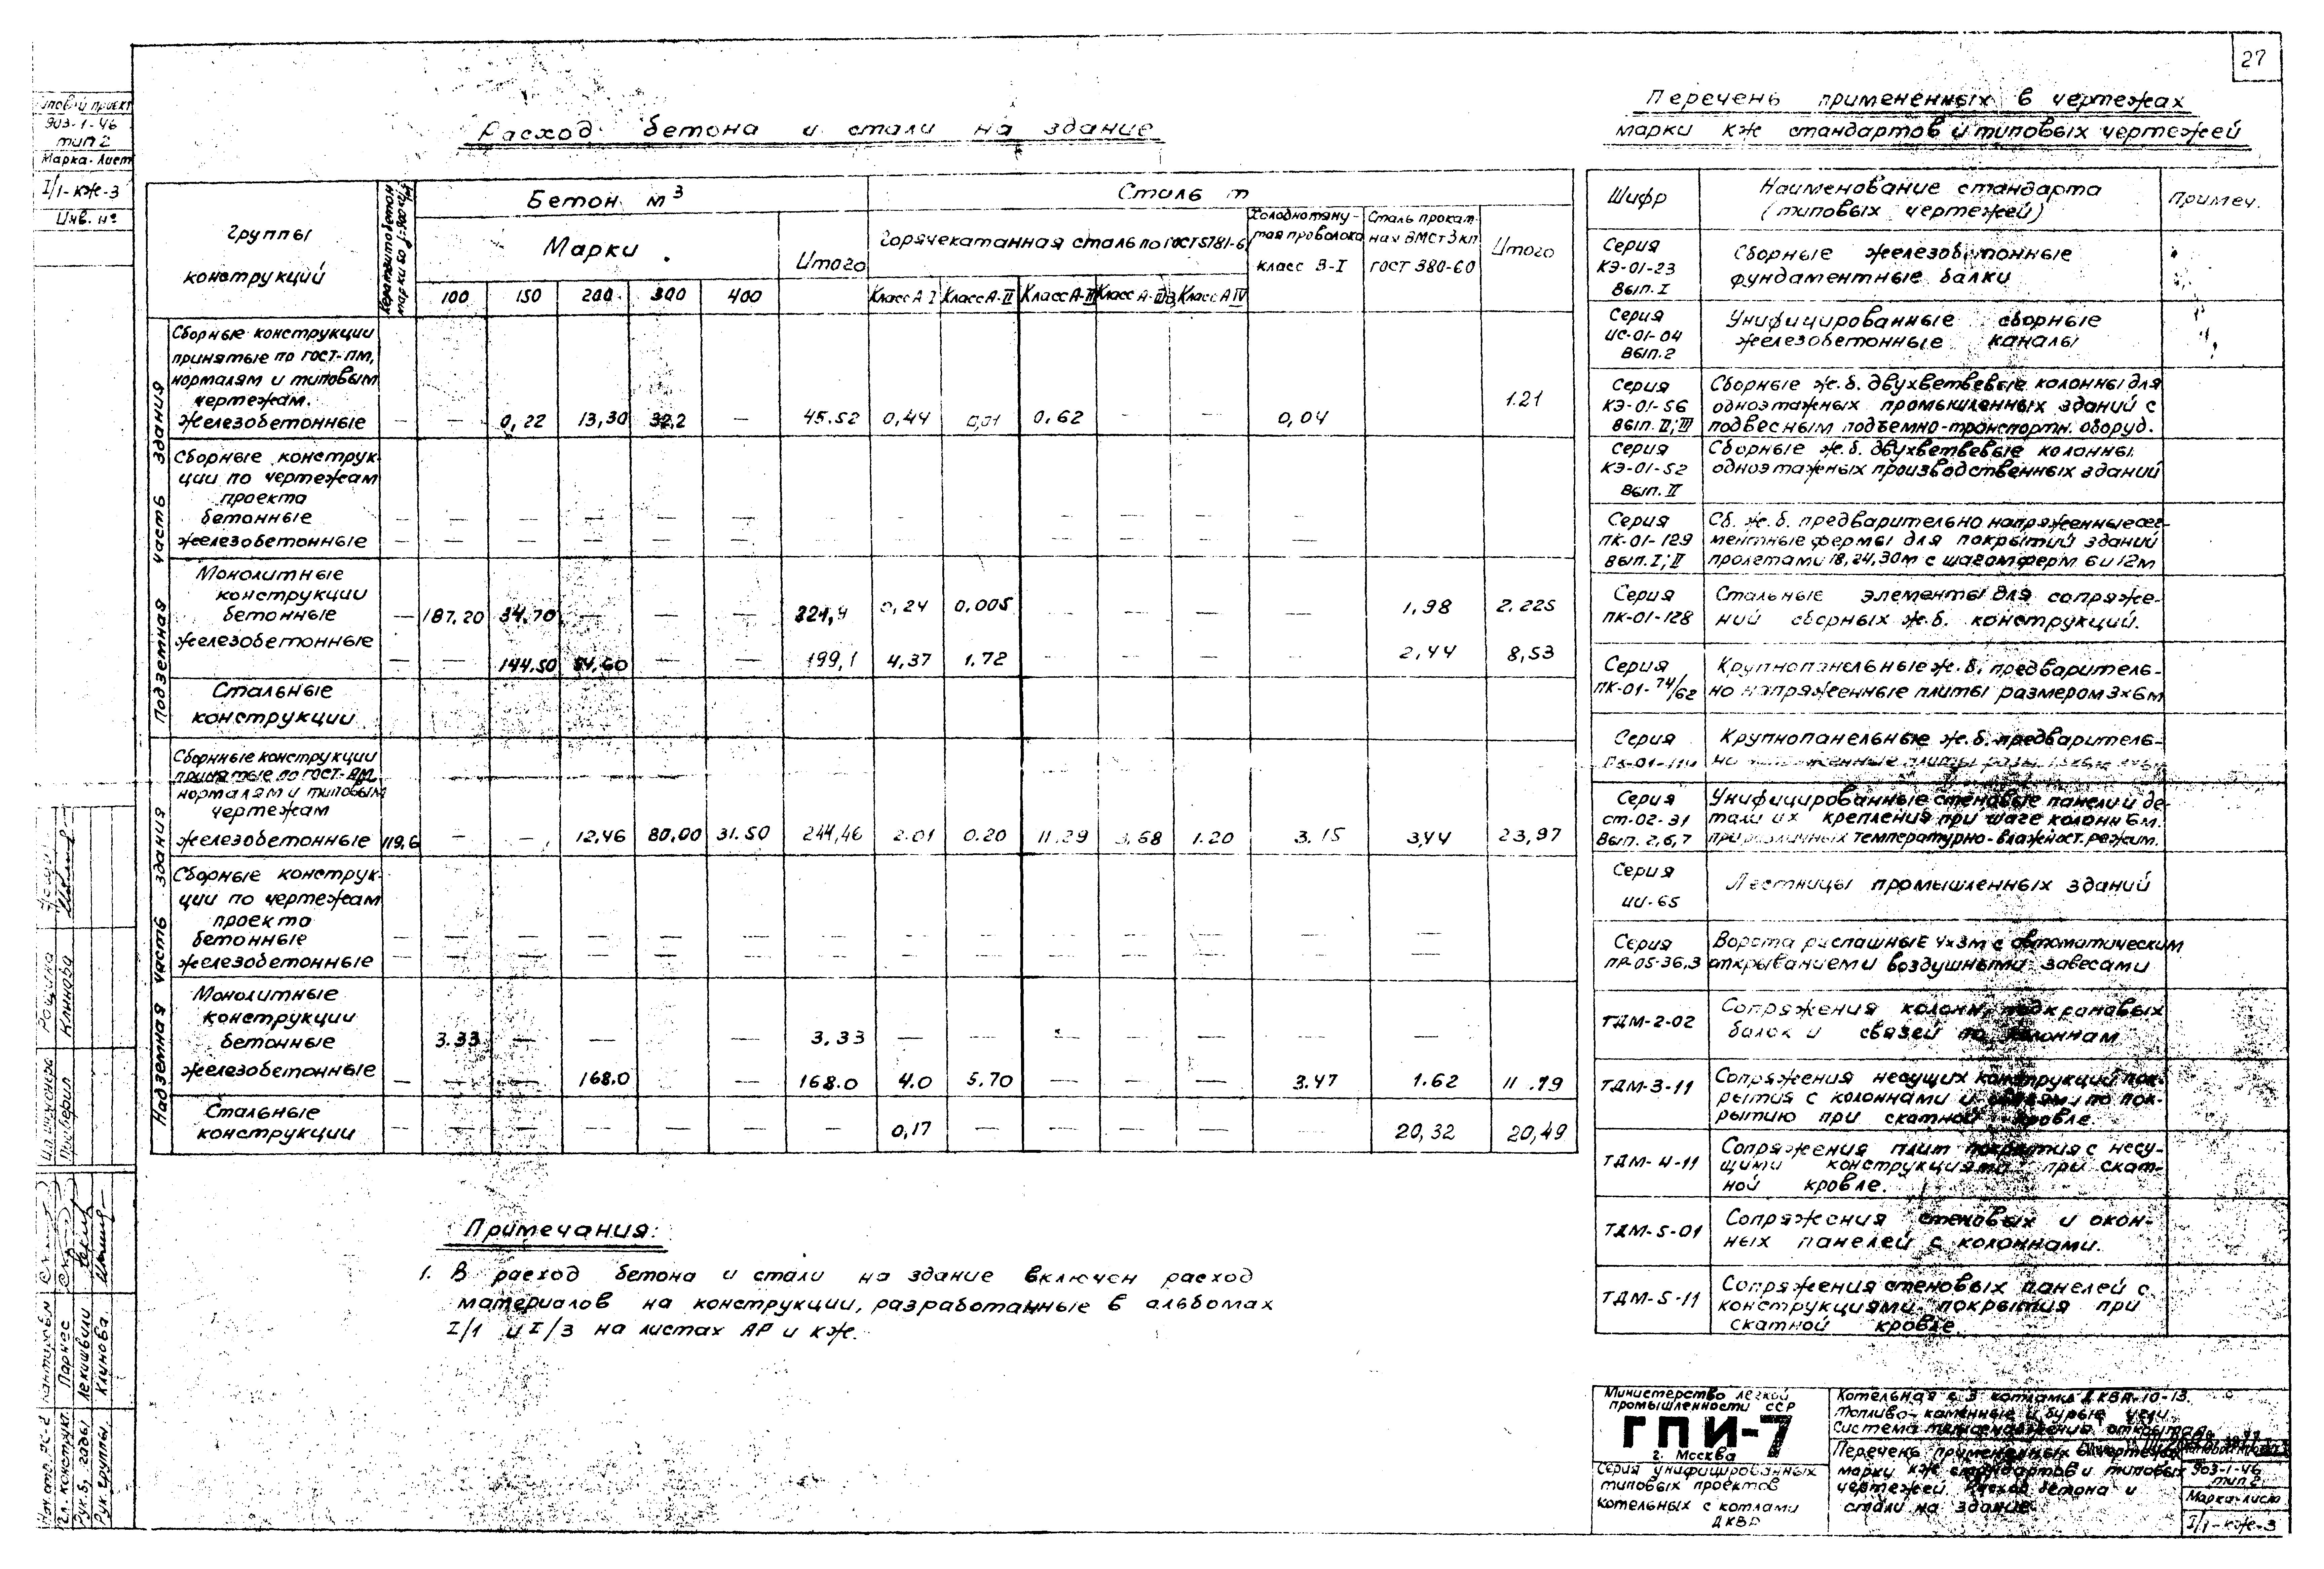 27
903-1-46
тип 2
Марка-Лист
I/1-КЖ-3
Инв. №
Расход бетона и стали на здание
Группы
конструкций
Керамзитобетон
Бетон м3
Марки
100
150
200
300
400
Итого
Сталь т
Горячекатанная сталь по ГОСТ 5781-6
Класс А I
Класс А-II
Класс А-III
Класс А-IIIв
Класс А IV
Холоднотяну-
тая проволока
класс В-I
Сталь прокат
ная ВМСт3кп
ГОСТ 380-60
Итого
Подземная часть здания
Сборные конструкции
принятые по ГОСТ-ам,
нормалям и типовым
чертежам.
Железобетонные — — 0,22 13,30 32,2 — 45.52 0,44 0,01 0.62 — — 0,04 1.21
Сборные конструк-
ции по чертежам
проекта
бетонные — — — — — — — — — — — — — — —
железобетонные — — — — — — — — — — — — — — —
Монолитные
конструкции
бетонные — 187,20 34,70 — — — 0,24 0,005 — — — — 1,98 2.225
железобетонные
— — 144.50 54,60 — — 199,1 4,37 1.72 — — — — 2,44 8,53
Стальные
конструкции
Надземная часть здания
Сборные конструкции
принятые по ГОСТ-ам
нормалям и типовым
чертежам
железобетонные 119,6 — — 12,46 80,00 31.50 244,46 2.01 0.20 11.29 3,68 1.20 3.15 3,44 23,97
Сборные конструк-
ции по чертежам
проекта
бетонные — — — — — — — — — — — — — —
железобетонные — — — — — — — — — — — — — —
Монолитные
конструкции
бетонные 3.33 — — — 3,33 — — — — — — —
железобетонные — — — 168.0 — 168.0 4.0 5.70 — — — 3.47 1.62 11.79
Стальные
конструкции — — — — — — — 0,17 — — — — — 20,32 20,49
Примечания:
1. В расход бетона и стали на здание включен расход
материалов на конструкции, разработанные в альбомах
I/1 и I/3 на листах АР и КЖ.
Перечень примененных в чертежах
марки КЖ стандартов и типовых чертежей
Шифр
Наименование стандарта
(типовых чертежей)
Примеч.
Серия
КЭ-01-23
Вып. I
Сборные железобетонные
фундаментные балки
Серия
ИС-01-04
Вып.2
Унифицированные сборные
железобетонные каналы
Серия
КЭ-01-56
Вып. II; III
Сборные ж.б. двухветвевые колонны для
одноэтажных промышленных зданий с
подвесным подъемно-транспортн. оборуд.
Серия
КЭ-01-52
Вып. II
Сборные ж.б. двухветвевые колонны
одноэтажных производственных зданий
Серия
ПК-01-129
Вып. I; II
Сб. ж.б. предварительно напряженные сег-
ментные фермы для покрытий зданий
пролетами 18,24,30м с шагом ферм 6 и 12м
Серия
ПК-01-128
Стальные элементы для сопряже-
ний сборных ж.б. конструкций.
Серия
ПК-01-74/62
Крупнопанельные ж.б. предваритель-
но напряженные плиты размером 3х6м
Серия
Крупнопанельные ж.б. предваритель-
Серия
СТ-02-31
Вып. 2,6,7
Унифицированные стеновые панели и де-
тали их крепления при шаге колонн 6м.
при различных температурно-влажност. режим.
Серия
ИИ-65
Лестницы промышленных зданий
Серия
ПР-05-36.3
Ворота распашные 4х3м с автоматическим
открыванием и воздушными завесами
ТДМ-2-02
Сопряжения колонн, подкрановых
балок и связей по колоннам
ТДМ-3-11
Сопряжения несущих конструкций пок-
рытия с колоннами и связями по пок-
рытию при скатной кровле.
ТДМ-4-11
Сопряжения плит покрытия с несу-
щими конструкциями при скат-
ной кровле.
ТДМ-5-01
Сопряжения стеновых и окон-
ных панелей с колоннами.
ТДМ-5-11
Сопряжения стеновых панелей с
конструкциями покрытия при
скатной кровле.
Министерство легкой
промышленности СССР
ГПИ-7
г. Москва
Серия унифицированных
типовых проектов
котельных с котлами
ДКВР
Котельная с 3 котлами ДКВР-10-13.
Топливо-каменные и бурые угли.
Система теплоснабжения открытая
Перечень примененных в чертежах
марки КЖ стандартов и типовых
чертежей. Расход бетона и
стали на здание
903-1-46
тип 2
Марка-лист
I/1-КЖ-3
Гл. конструкт. Парнес
Рук. группы. Клинова
Проверил